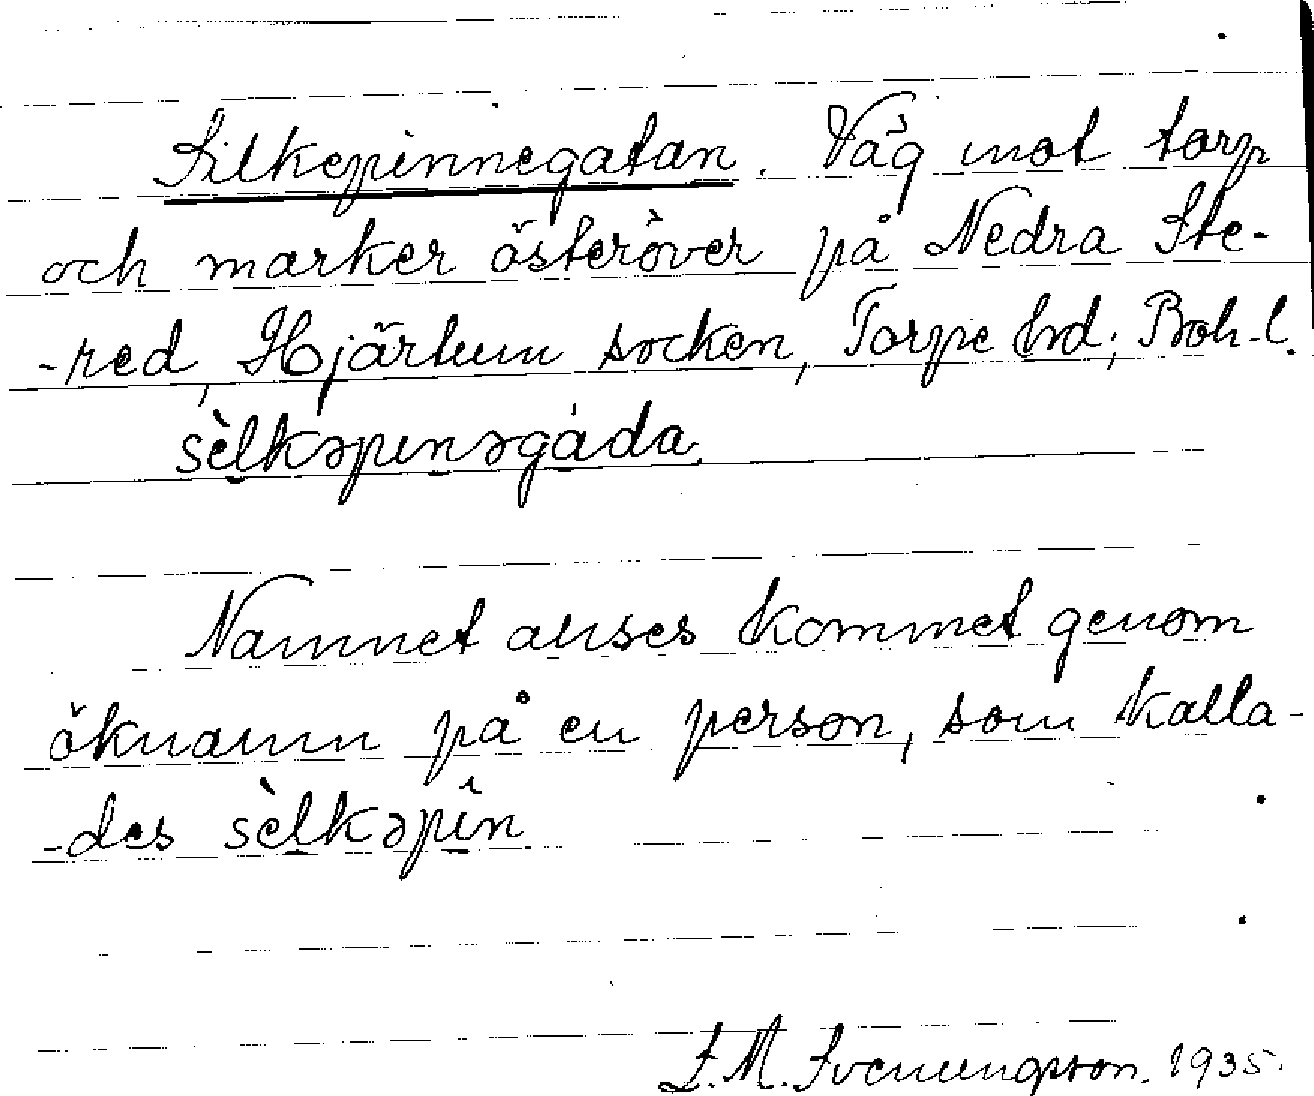 Silkepinnegatan. Väg mot torp
och marker österöver på Nedra Ste-
-red, Hjärtum socken, Torpe hd; Boh-l.
sèlkəpinəgáda.
Namnet anses kommet genom
öknamn på en person, som kalla-
-des sèlkəpin
S. M. Svenungsson. 1935.